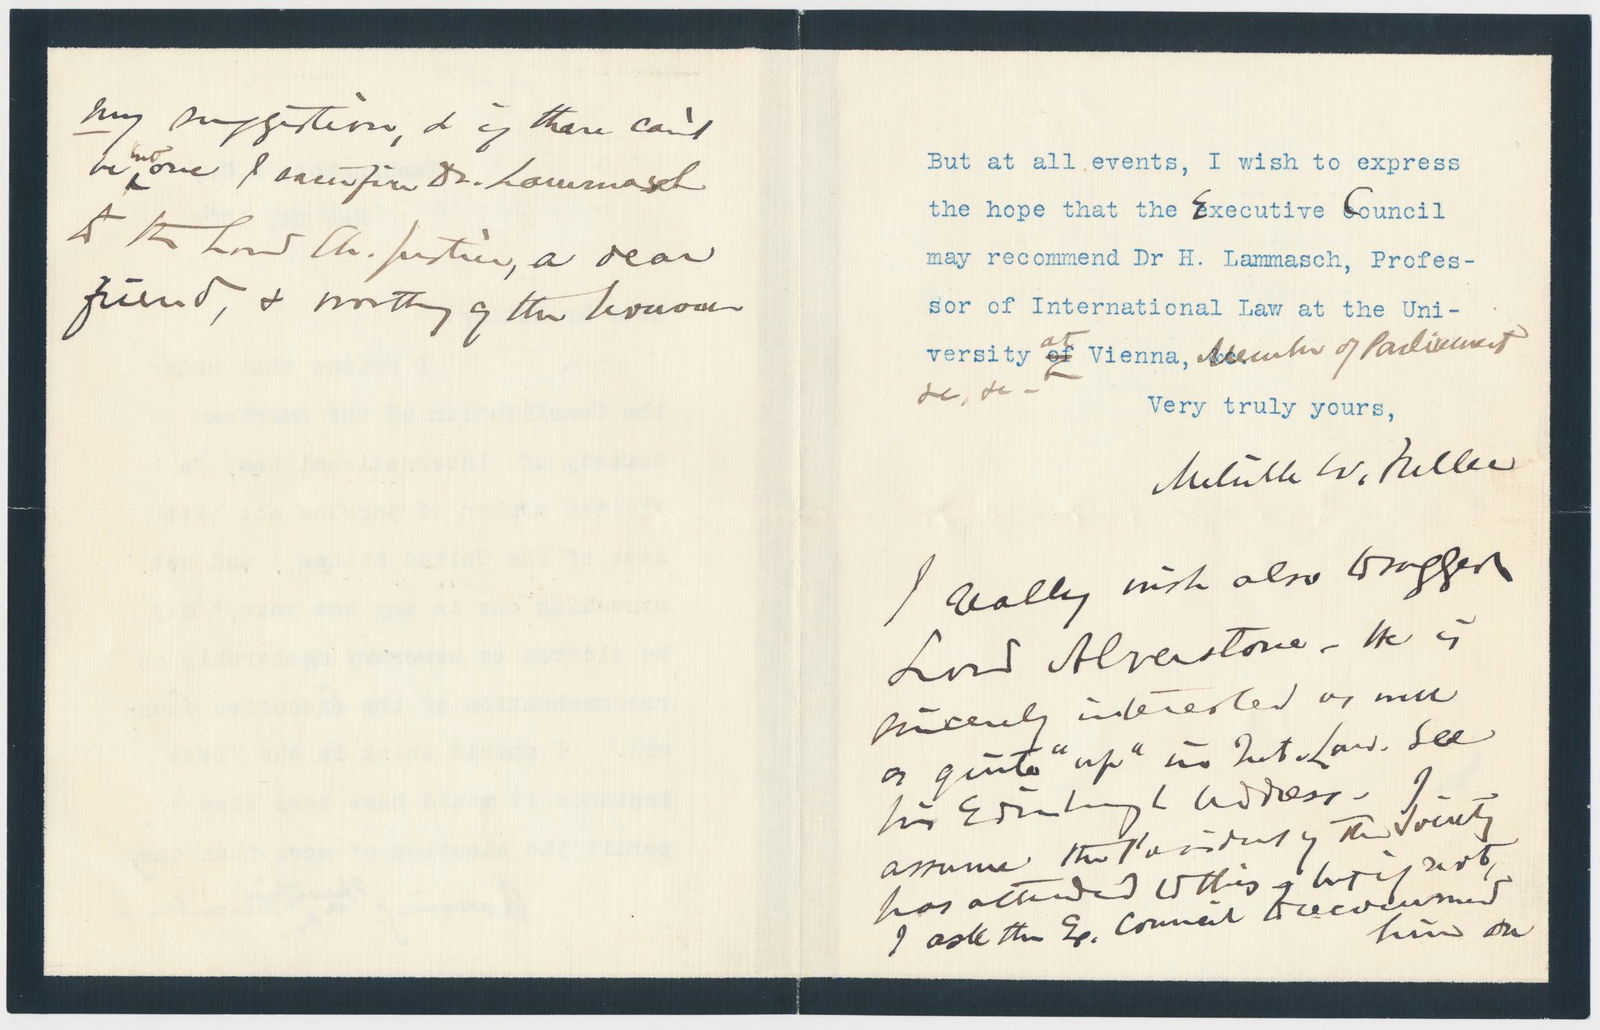 But at all events, I wish to express
the hope that the Executive Council
may recommend Dr H. Lammasch, Profes-
sor of International Law at the Uni-
versity at Vienna, Member of Parliament
&c, &c -
Very truly yours,
Melville W. Fuller
I really wish also to suggest
Lord Alverstone - He is
sincerely interested as well
as quite "up" in Int. Law. See
his Edinburgh Address - I
assume the President of the Society
has attended to this, but if not,
I ask the Ex. Council to recommend
him on
my suggestion, & if there can't
be but one I sacrifice Dr. Lammasch
to the Lord Ch. Justice, a dear
friend, & worthy of the honour